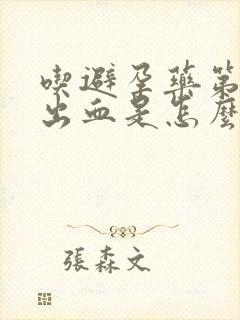 喫避孕藥第
出血是怎麼
張森文